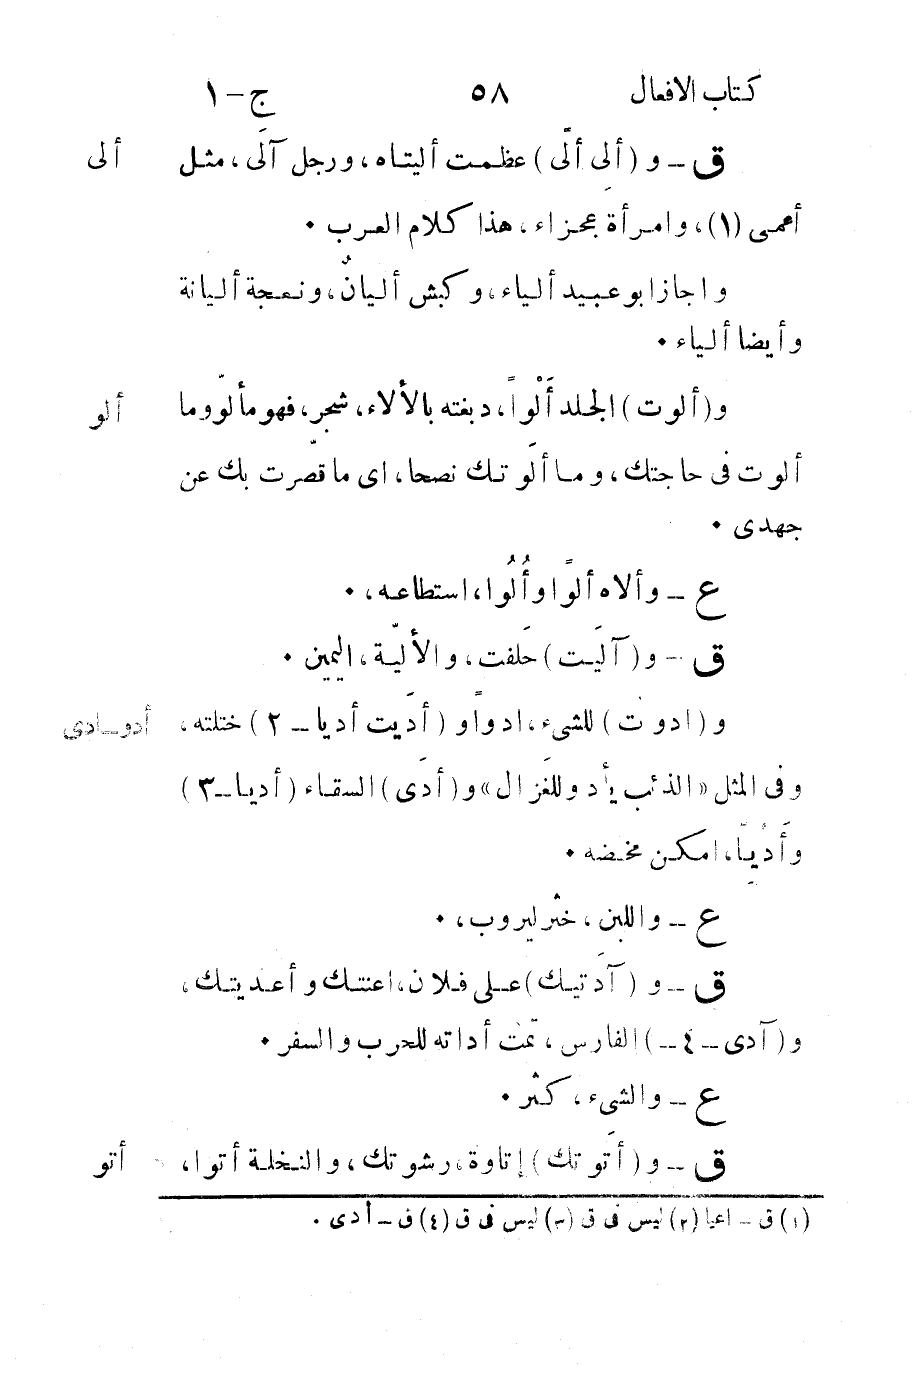 كتاب الافعال ٥٨ ج–١
ق – و (ألى ألّى) عظمت أليتاه، ورجل آلَى، مثل ألى
أعمى (١)، وامرأة عجزاء، هذا كلام العرب ٠
واجاز ابوعبيد ألياء، وكبش أليانٌ، ونعجة أليانة
وأيضا ألياء ٠
و(ألوت) الجلد أَلْواً، دبغته بالألاء، شجر، فهو مألوّ وما ألو
ألوت فى حاجتك، وما ألَوتك نصحا، اى ما قصّرت بك عن
جهدى ٠
ع – وألاه ألوًا وأُلُوا، استطاعه، ٠
ق – و(آليت) حَلَفت، والأليّة، اليمين ٠
و(ادوت) للشىء، ادواً و (أدَيت أديا – ٢) ختلته، أدو–ادى
وفى المثل «الذئب يأدو للغَزال» و(أدَى) السقاء (أديا–٣)
وأَدُيّا، امكن مخضه ٠
ع – واللبن، خثر ليروب، ٠
ق – و (آدَتيك) على فلان، اعنتك وأعديتك،
و(آدى – ٤ –) الفارس، تمّت أداته للحرب والسفر ٠
ع – والشىء، كثُر ٠
ق – و (أتَوتك) إتاوة، رشوتك، والنخلة أتوا، أتو
(١) ق – اعيا (٢) ليس فى ق (٣) ليس فى ق (٤) ق – أدى ٠